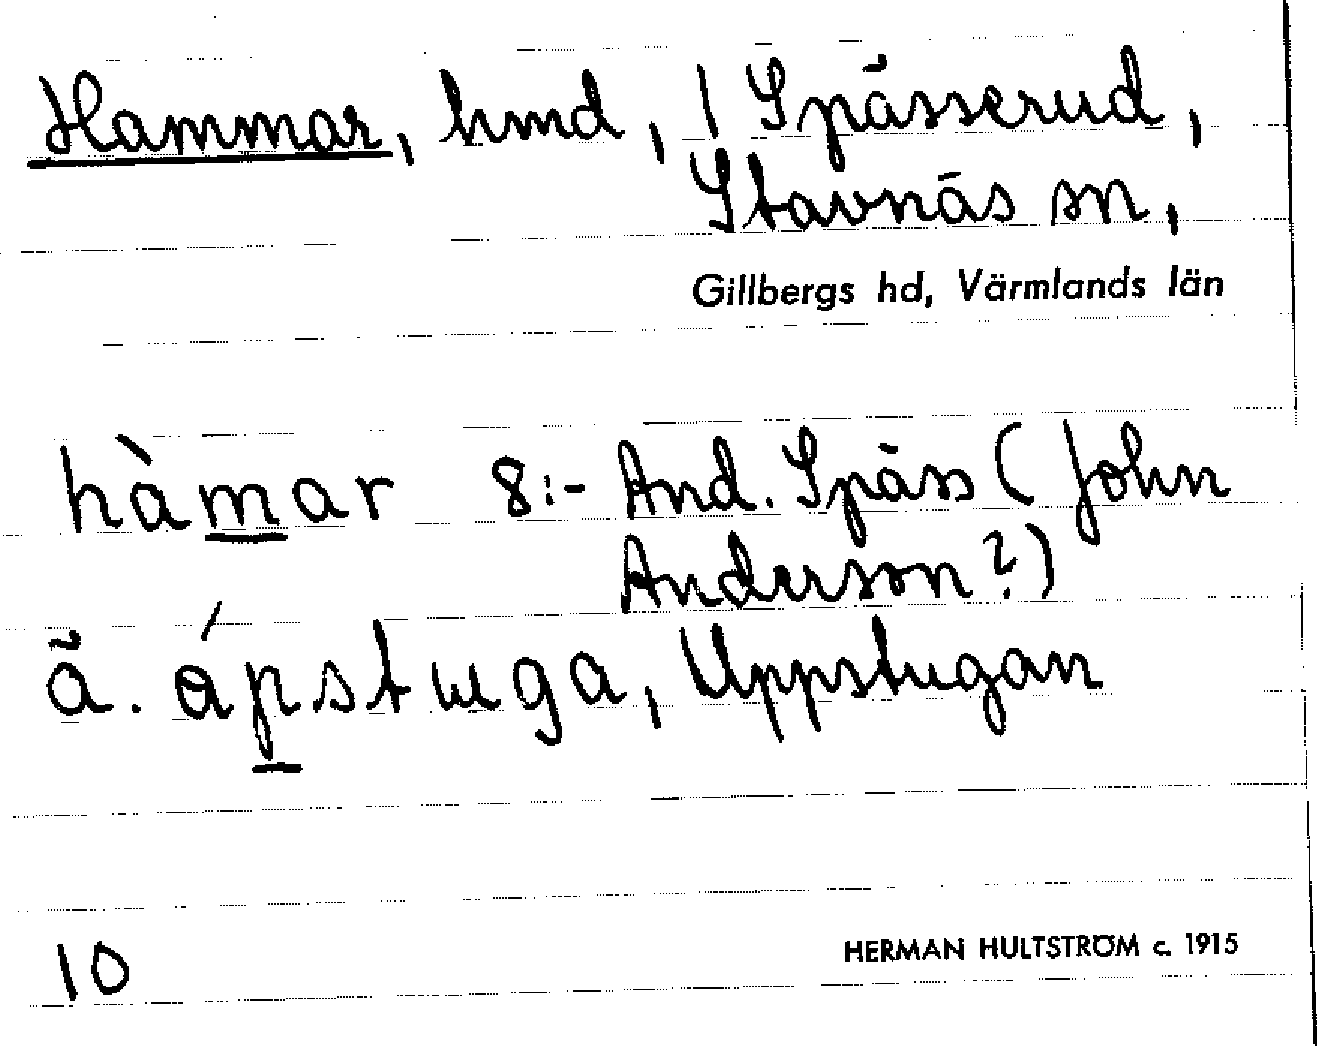 Hammar, hmd, / Spässerud,
Stavnäs sn,
Gillbergs hd, Värmlands län
hàmar 8:- And. Späss (John
Anderson?)
ä. ápstuga, Uppstugan
10
HERMAN HULTSTRÖM c. 1915